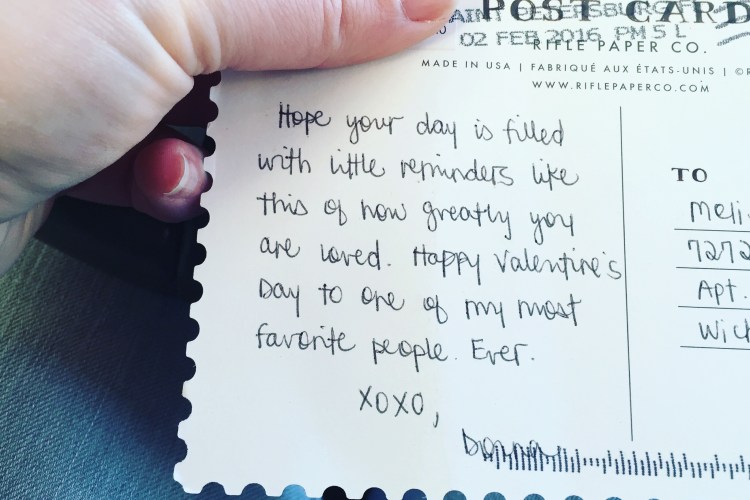 POST CARD
SAINT PETERSBURG FL
02 FEB 2016 PM 5 L
RIFLE PAPER CO.
MADE IN USA | FABRIQUÉ AUX ÉTATS-UNIS | ©
WWW.RIFLEPAPERCO.COM
Hope your day is filled
with little reminders like
this of how greatly you
are loved. Happy Valentine's
Day to one of my most
favorite people. Ever.
XOXO,
Donna
TO
Meli
7272
Apt.
Wich